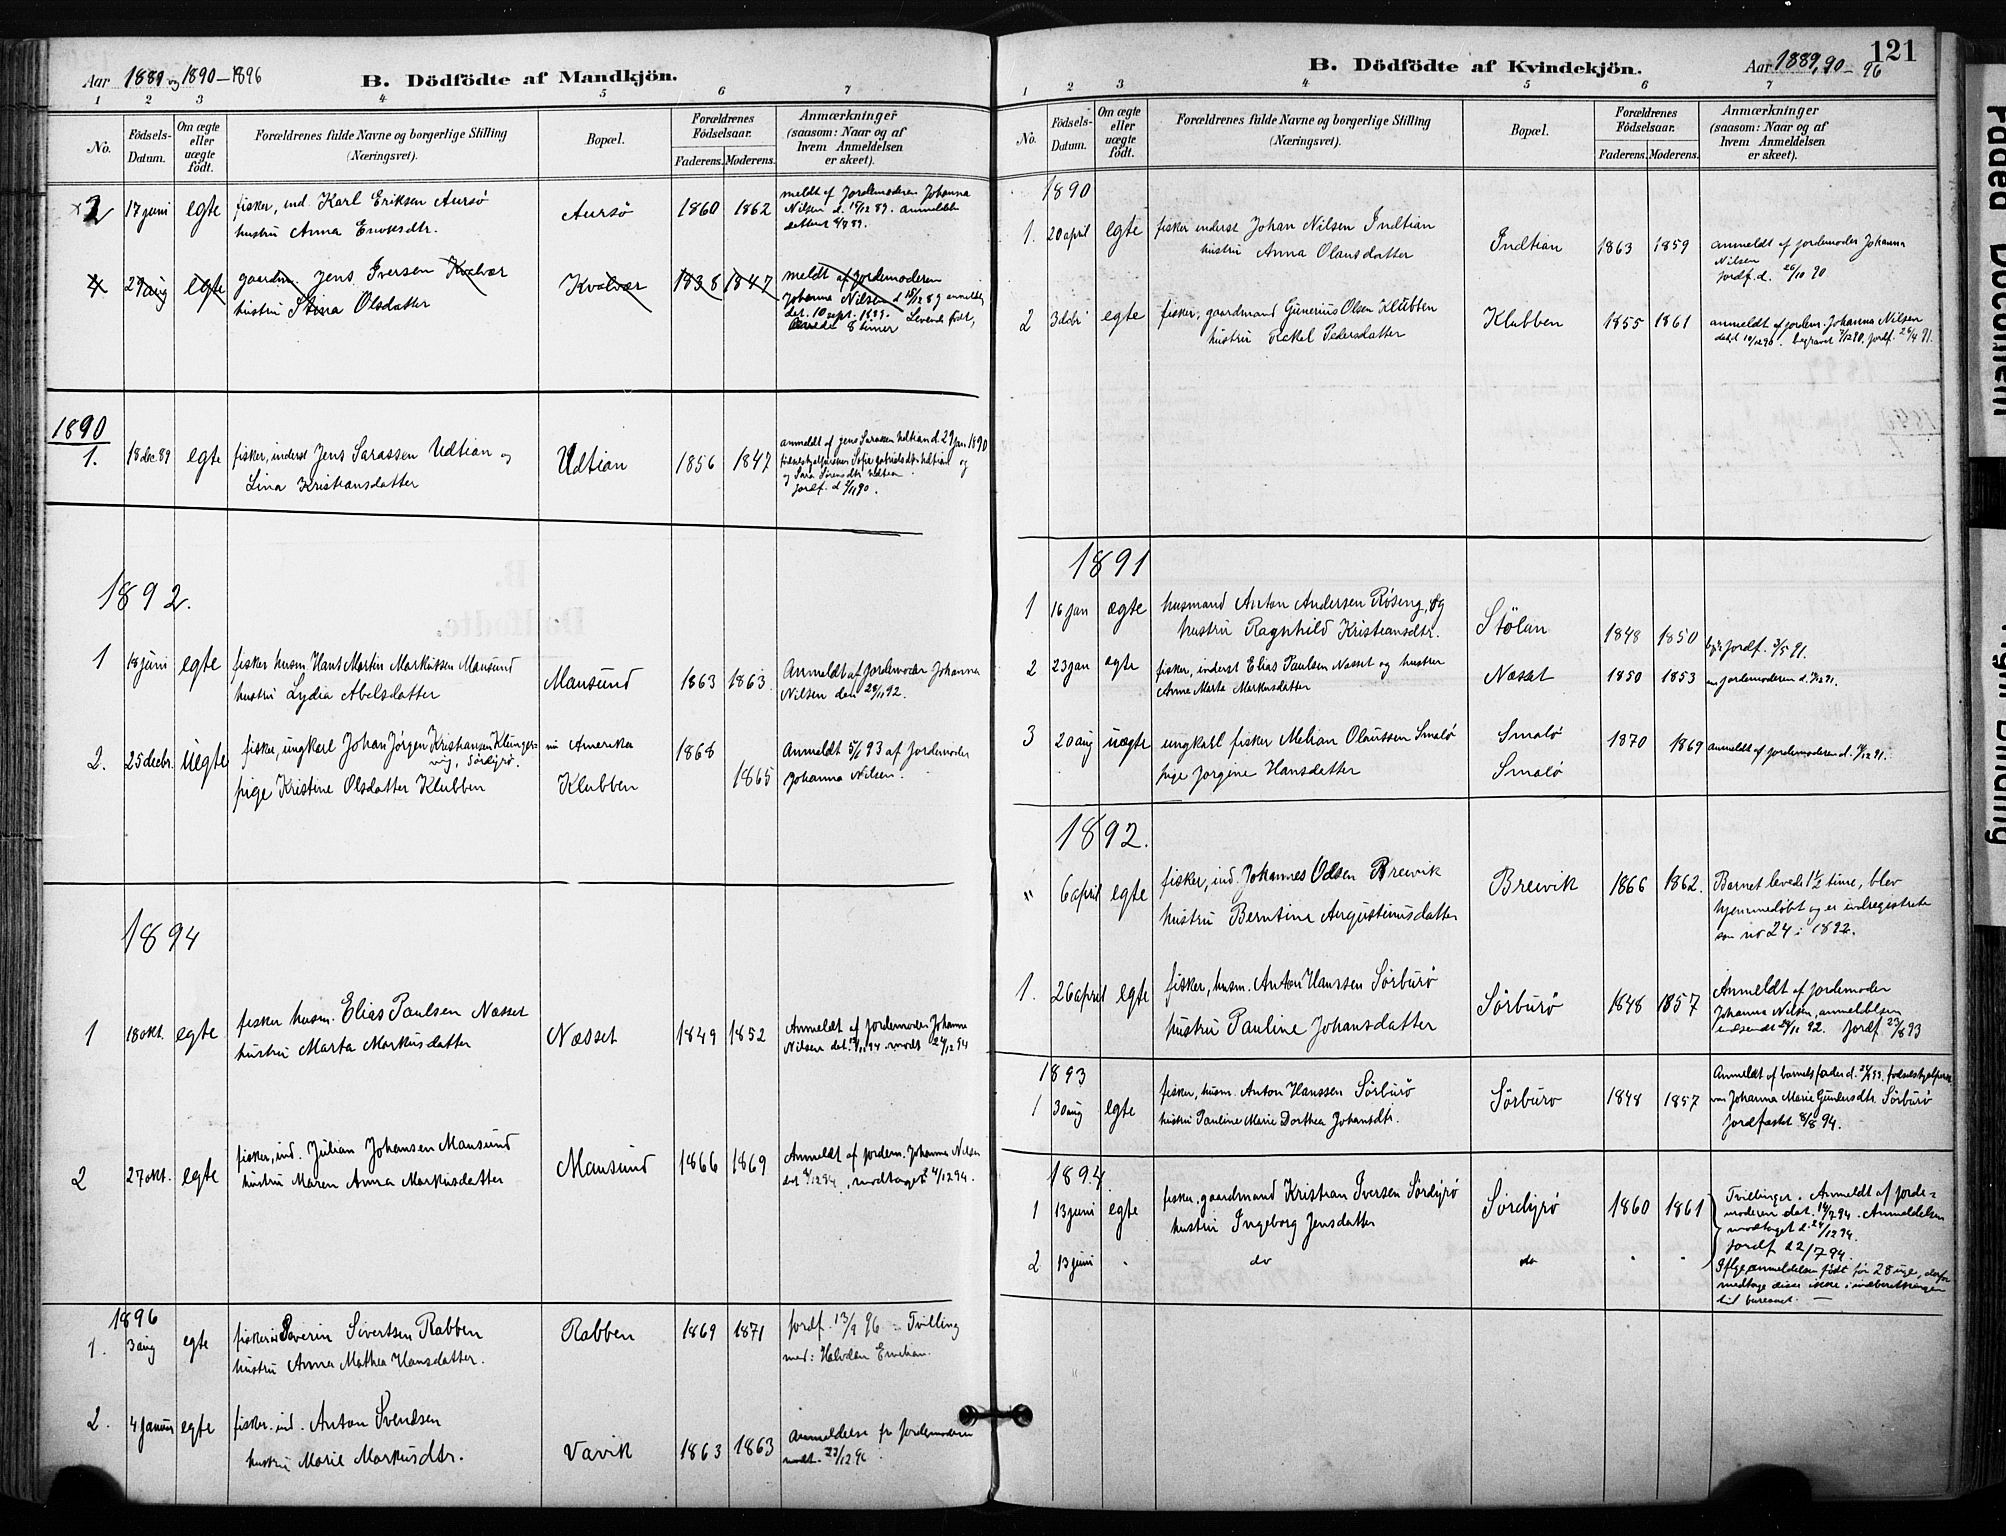 Aar 1889 og 1890–1896
B. Dödfödte af Mandkjön.
1 2 3 4 5 6 7
No.
Födsels-Datum.
Om ægte eller uægte födt.
Forældrenes fulde Navne og borgerlige Stilling (Næringsvei).
Bopæl.
Forældrenes Födselsaar.
Faderens. Moderens.
Anmærkninger (saasom: Naar og af hvem Anmeldelsen er skeet).
2 17 juni egte fisker, ind. Karl Eriksen Aursö Aursö 1860 1862 meldt af Jordemoderen Johanna
hustru Anna Enoksdtr. Nilsen d. 18/12 89.
4 29 aug egte gaardm. Jens Iversen Kvalvær Kvalvær 1838 1847 meldt af Jordemoderen
hustru Stina Olsdatter Johanna Nilsen d. 18/12 89
det. 10 sept. 1889. Levende födt,
levede 8 timer
1890
1. 18 dec. 89 egte fisker, inderst Jens Sarassen Udtian og Udtian 1856 1847 anmeldt af Jens Sarassen Udtian d. 29 jan 1890
Lina Kristiansdatter
Jordf. d.
1892.
1 18 juni egte fisker husm. Hans Martin Markussen Mausund Mausund 1863 1863 Anmeldt af Jordemoder Johanna
hustru Lydia Abelsdatter Nilsen den 28/11 92.
2. 25 decbr. uegte fisker, ungkarl Johan Jörgen Kristiansen Klungervig, Sördyrö. Amerika 1868 Anmeldt 5/1 93 af Jordemoder
pige Kristine Olsdatter Klubben Klubben 1865 Johanna Nilsen.
1894
1 18 okt. egte fisker husm. Elias Paulsen Næsset Næsset 1849 1852 Anmeldt af Jordemoder Johanna
hustru Marta Markusdatter Nilsen
2 27 okt. egte fisker, ind. Julian Johansen Mausund Mausund 1866 1869 Anmeldt af jordem. Johanna Nilsen
hustru Maren Anna Markusdatter modtaget 4/12 94.
1896
1. 3 aug egte fisker Severin Sivertsen Rabben Rabben 1869 1871 Jordf. 13/9 96 – Tvilling
hustru Anna Mathea Hansdatter. med: Halvdan
2. 4 januar egte fisker. ind. Anton Svendsen Vavik 1863 1863 Anmeldelse fr Jordemoderen
hustru Marie Markusdtr. modt. 23/12 96
B. Dödfödte af Kvindekjön.
Aar 1889, 90–96
121
1 2 3 4 5 6 7
No.
Födsels-Datum.
Om ægte eller uægte födt.
Forældrenes fulde Navne og borgerlige Stilling (Næringsvei).
Bopæl.
Forældrenes Födselsaar.
Faderens. Moderens.
Anmærkninger (saasom: Naar og af hvem Anmeldelsen er skeet).
1890
1. 20 april egte fisker inderst Johan Nilsen Indtian Indtian 1863 1859 anmeldt af jordemoder Johanna
hustru Anna Olausdatter Nilsen
Jordf. d. 26/10 90
2 3 debr egte fisker, gaardmand Gunerius Olsen Klubben Klubben 1855 1861 anmeldt af jordem. Johanna Nilsen
hustru Rakel Pedersdatter
1891
1 16 jan ægte husmand Anton Andersen Röseng, og Stölan 1848 1850 Jordf. 3/5 91.
hustru Ragnhild Kristiansdtr.
2 23 jan egte fisker, inderst Elias Paulsen Næsset og hustru Næsset 1850 1853 jordemoderen
Anne Marta Markusdatter
3 20 aug uægte ungkarl fisker Melian Olaussen Smalö Smalö 1870 1869 anmeldt af jordemoderen d.
pige Jorgine Hansdatter Smalö
1892.
" 6 april egte fisker, ind. Johannes Olsen Breivik Breivik 1866 1862. Barnet levede 1½ time, blev
hustru Berntine Augustinusdatter hjemmedöbt og er indregistreret
som no 24 i 1892.
1. 26 april egte fisker, husm. Anton Hanssen Sörburö Sörburö 1848 1857 Anmeldt af jordemoder
hustru Pauline Johansdatter Johanna Nilsen, anmeldelsen
indsendt 28/11 92. Jordf. 27/8 93
1893
1 30 aug egte fisker, husm. Anton Hanssen Sörburö Sörburö 1848 1857 Anmeldt af barnets fader
hustru Pauline Marie Dorthea Johansdtr. Johanna Marie Gundersdtr. Sörburö
Jordfæstet 8/8 94.
1894
1 13 juni egte fisker, gaardmand Kristian Iversen Sördyrö Sördyrö 1860 1861 Tvillinger. Anmeldt af jorde-
hustru Ingeborg Jensdatter moderen det. 14/7 94. Anmeldelsen
modtaget d. 24/12 94.
Jordf d 2/7 94.
2 13 juni " do do " " Iflge anmeldelsen födt för 28 uge, derfor
medtage disse ikke i indberetningen
til bureauet. –